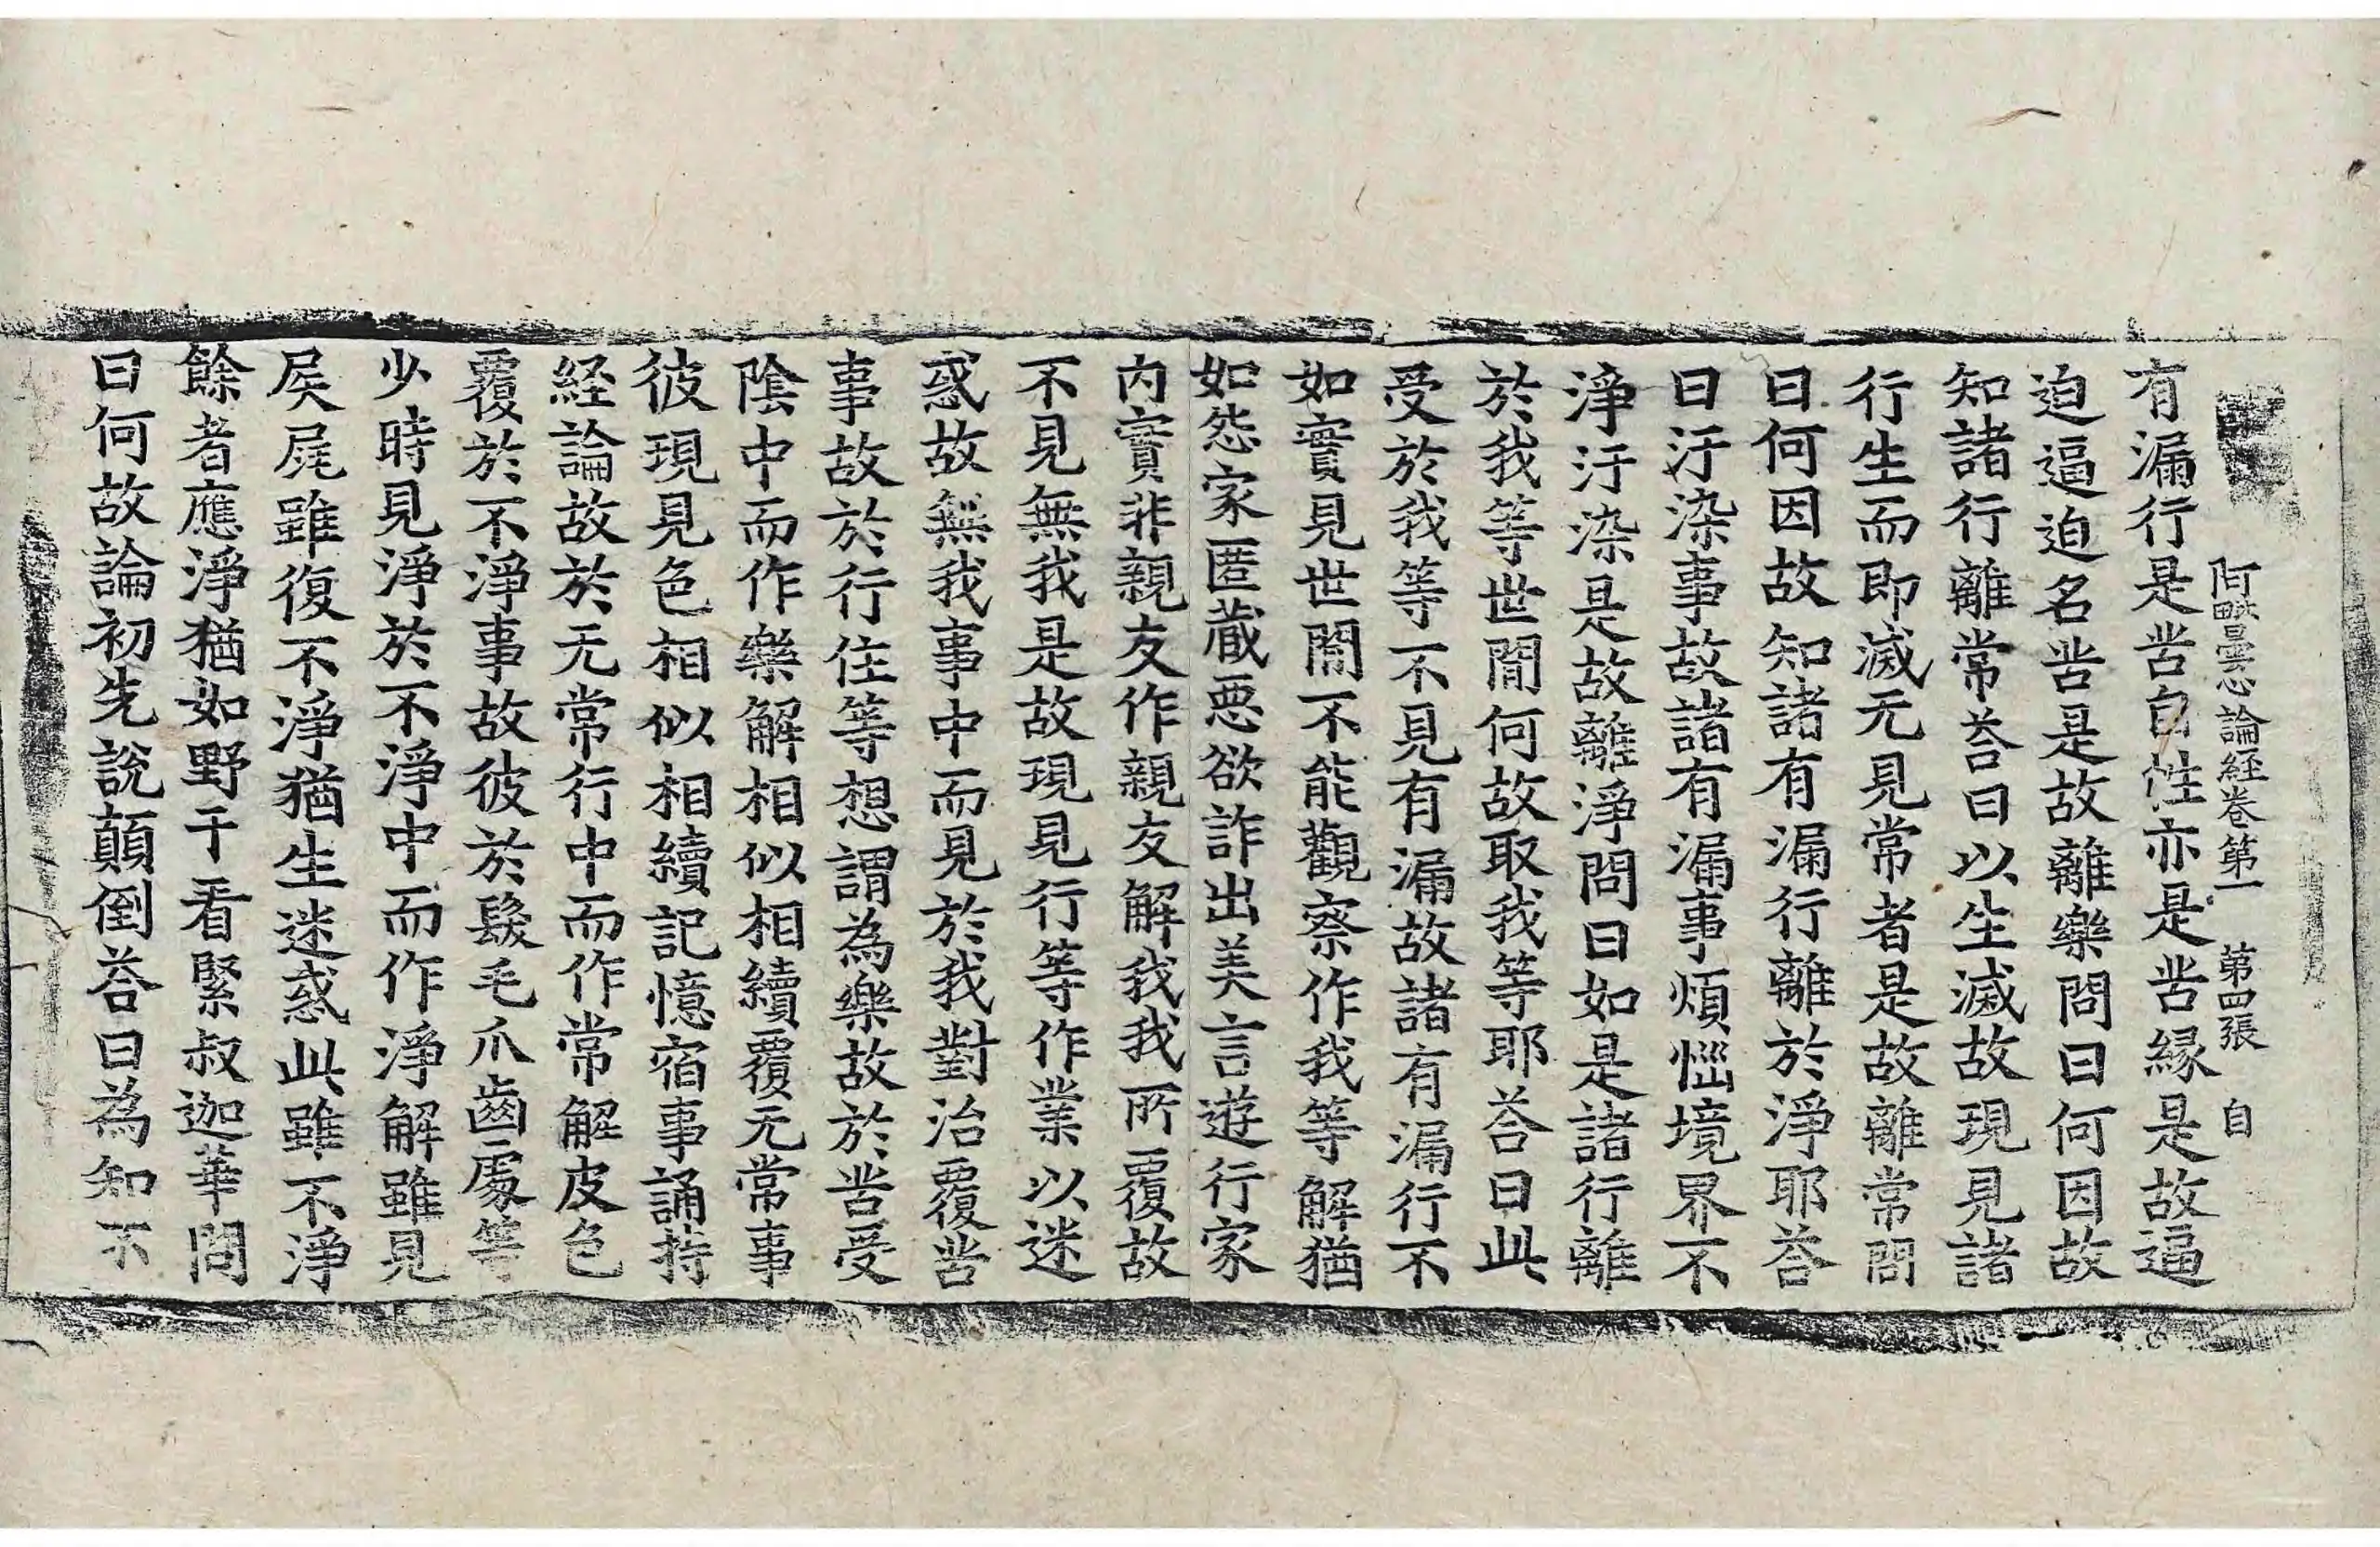 阿毗曇心論経卷第一 第四張 自
有漏行是苦自性亦是苦縁是故逼
迫逼迫名苦是故離樂問曰何因故
知諸行離常荅曰以生滅故現見諸
行生而即滅无見常者是故離常問
曰何因故知諸有漏行離於淨耶荅
曰汙染事故諸有漏事煩惱境界不
淨汙染是故離淨問曰如是諸行離
於我等世間何故取我等耶荅曰此
受於我等不見有漏故諸有漏行不
如實見世間不能觀察作我等解猶
如怨家匿蔵惡欲詐出美言遊行家
内實非親友作親友解我我所覆故
不見無我是故現見行等作業以迷
惑故無我事中而見於我對治覆苦
事故於行住等想謂為樂故於苦受
陰中而作樂解相似相續覆无常事
彼現見色相似相續記憶宿事誦持
経論故於无常行中而作常解皮色
覆於不淨事故彼於髮毛爪齒處等
少時見淨於不淨中而作淨解雖見
屎尿雖復不淨猶生迷惑此雖不淨
餘者應淨猶如野干看緊叔迦華問
曰何故論初先說顛倒荅曰為知不